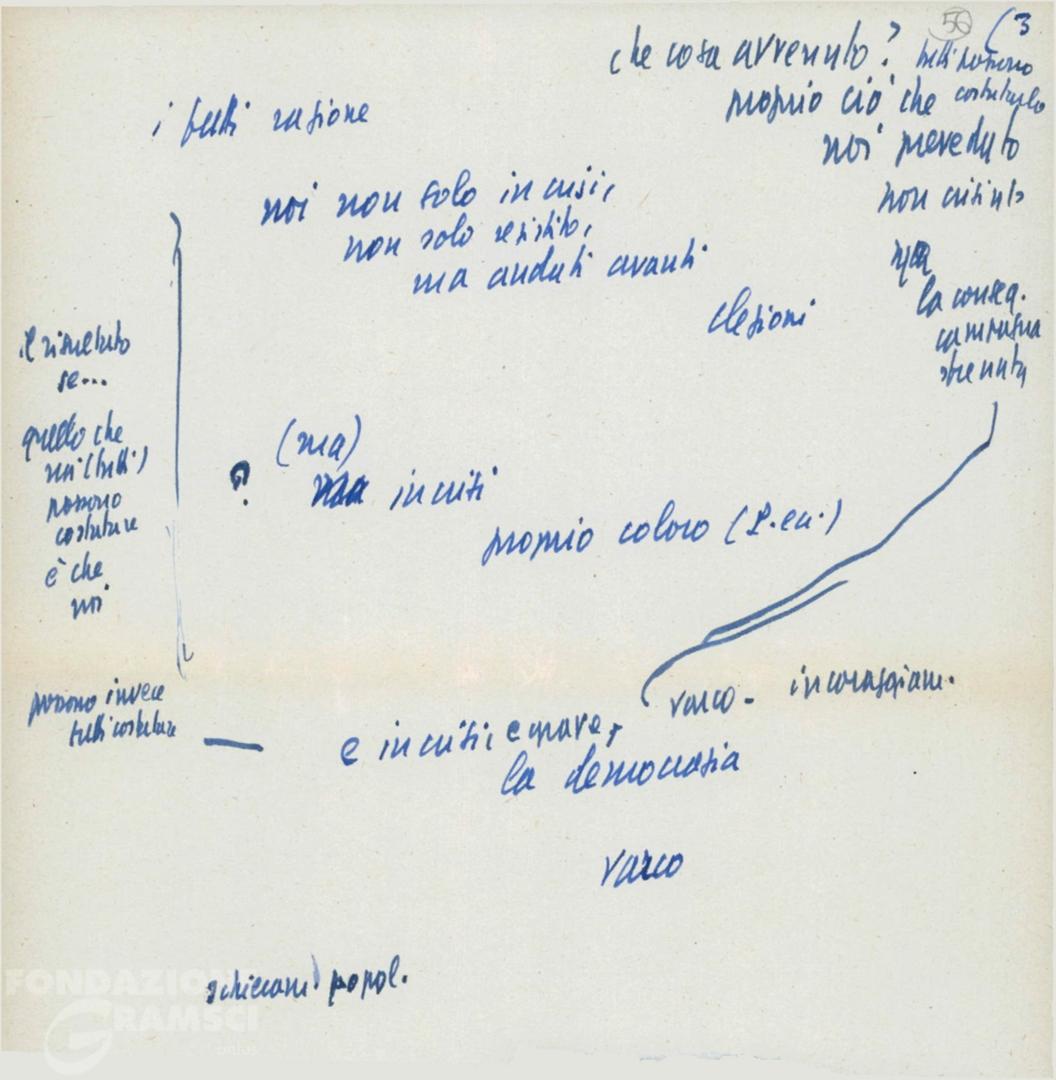 56 (3
che cosa avvenuto? tutti possono
proprio ciò che constatarlo
noi preveduto
i fatti ragione
noi non solo in crisi,
non solo resistito,
ma andati avanti
elezioni
non crisi
ma
la conseg.
campagna
il risultato
se...
quello che
noi (tutti)
possono
constatare
è che
noi
?
(ma)
ma in crisi
proprio coloro
possono invece
tutti constatare
varco - incoraggiam.
e in crisi, e grave,
la democrazia
varco
schieram. popol.
FONDAZIONE
GRAMSCI
ONLUS